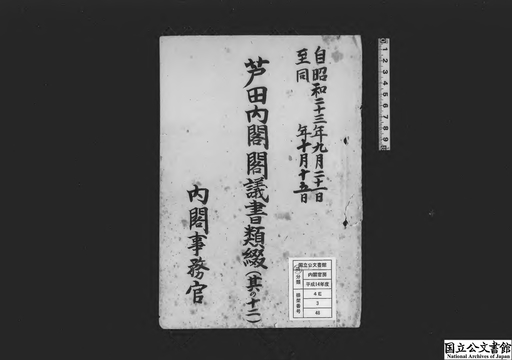 自昭和二十三年九月二十一日
至同 年十月十五日
芦田内閣閣議書類綴(其の十二)
内閣事務官
国立公文書館
分類
内閣官房
平成14年度
4 E
排架番号
3
40
国立公文書館
National Archives of Japan